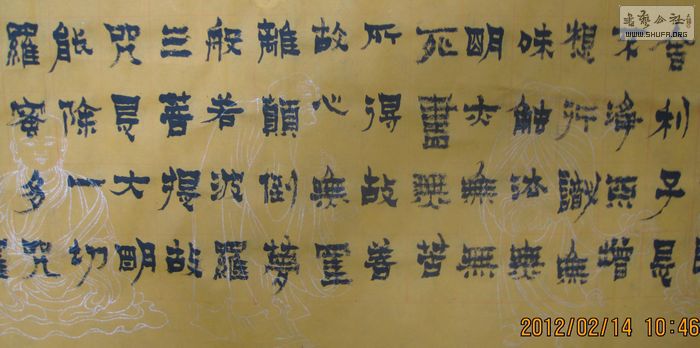 舍利子是
不淨不增
想行識無
味觸法無
明亦無無
死盡無苦
所得故菩
故心無罣
離顛倒夢
般若波羅
三菩提故
咒是大明
能除一切
羅蜜多咒
書藝公社
WWW.SHUFA.ORG
2012/02/14 10:46